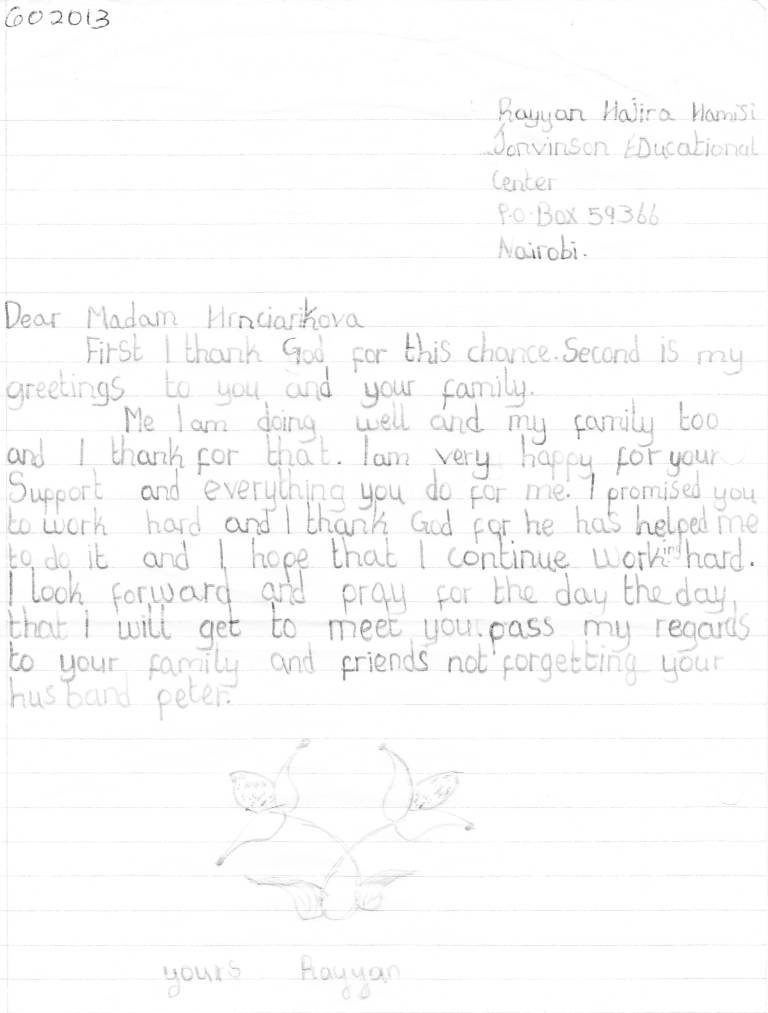 602013
Rayyan Hajira Hamisi
Jonvinson EDucational
Center
P.O.Box 59366
Nairobi.
Dear Madam Hrnciarikova
First I thank God for this chance. Second is my
greetings to you and your family.
Me I am doing well and my family too
and I thank for that. I am very happy for your
Support and everything you do for me. I promised you
to work hard and I thank God for he has helped me
to do it and I hope that I continue working hard.
I look forward and pray for the day the day,
that I will get to meet you. pass my regards
to your family and friends not forgetting your
husband peter.
yours Rayyan